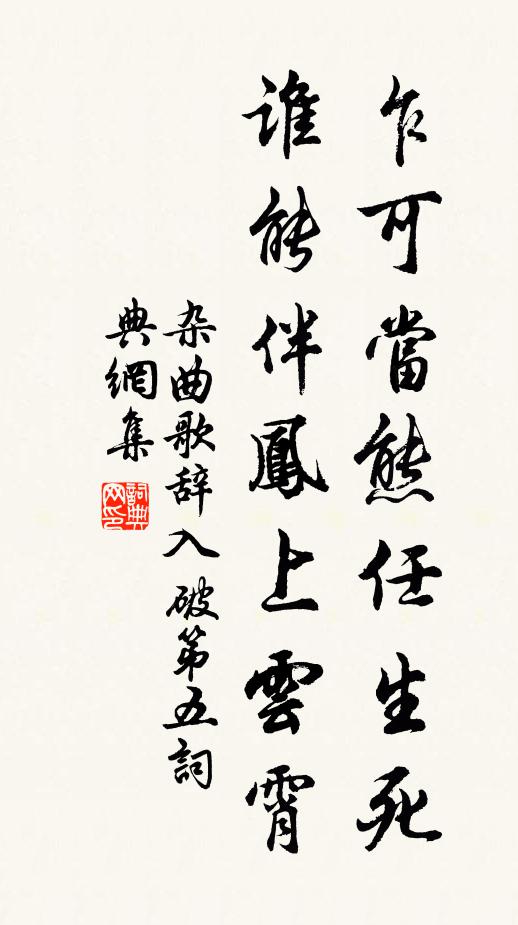 乍可當熊任生死
誰能伴鳳上雲霄
杂曲歌辞入破第五詞
典網集
詞典网印